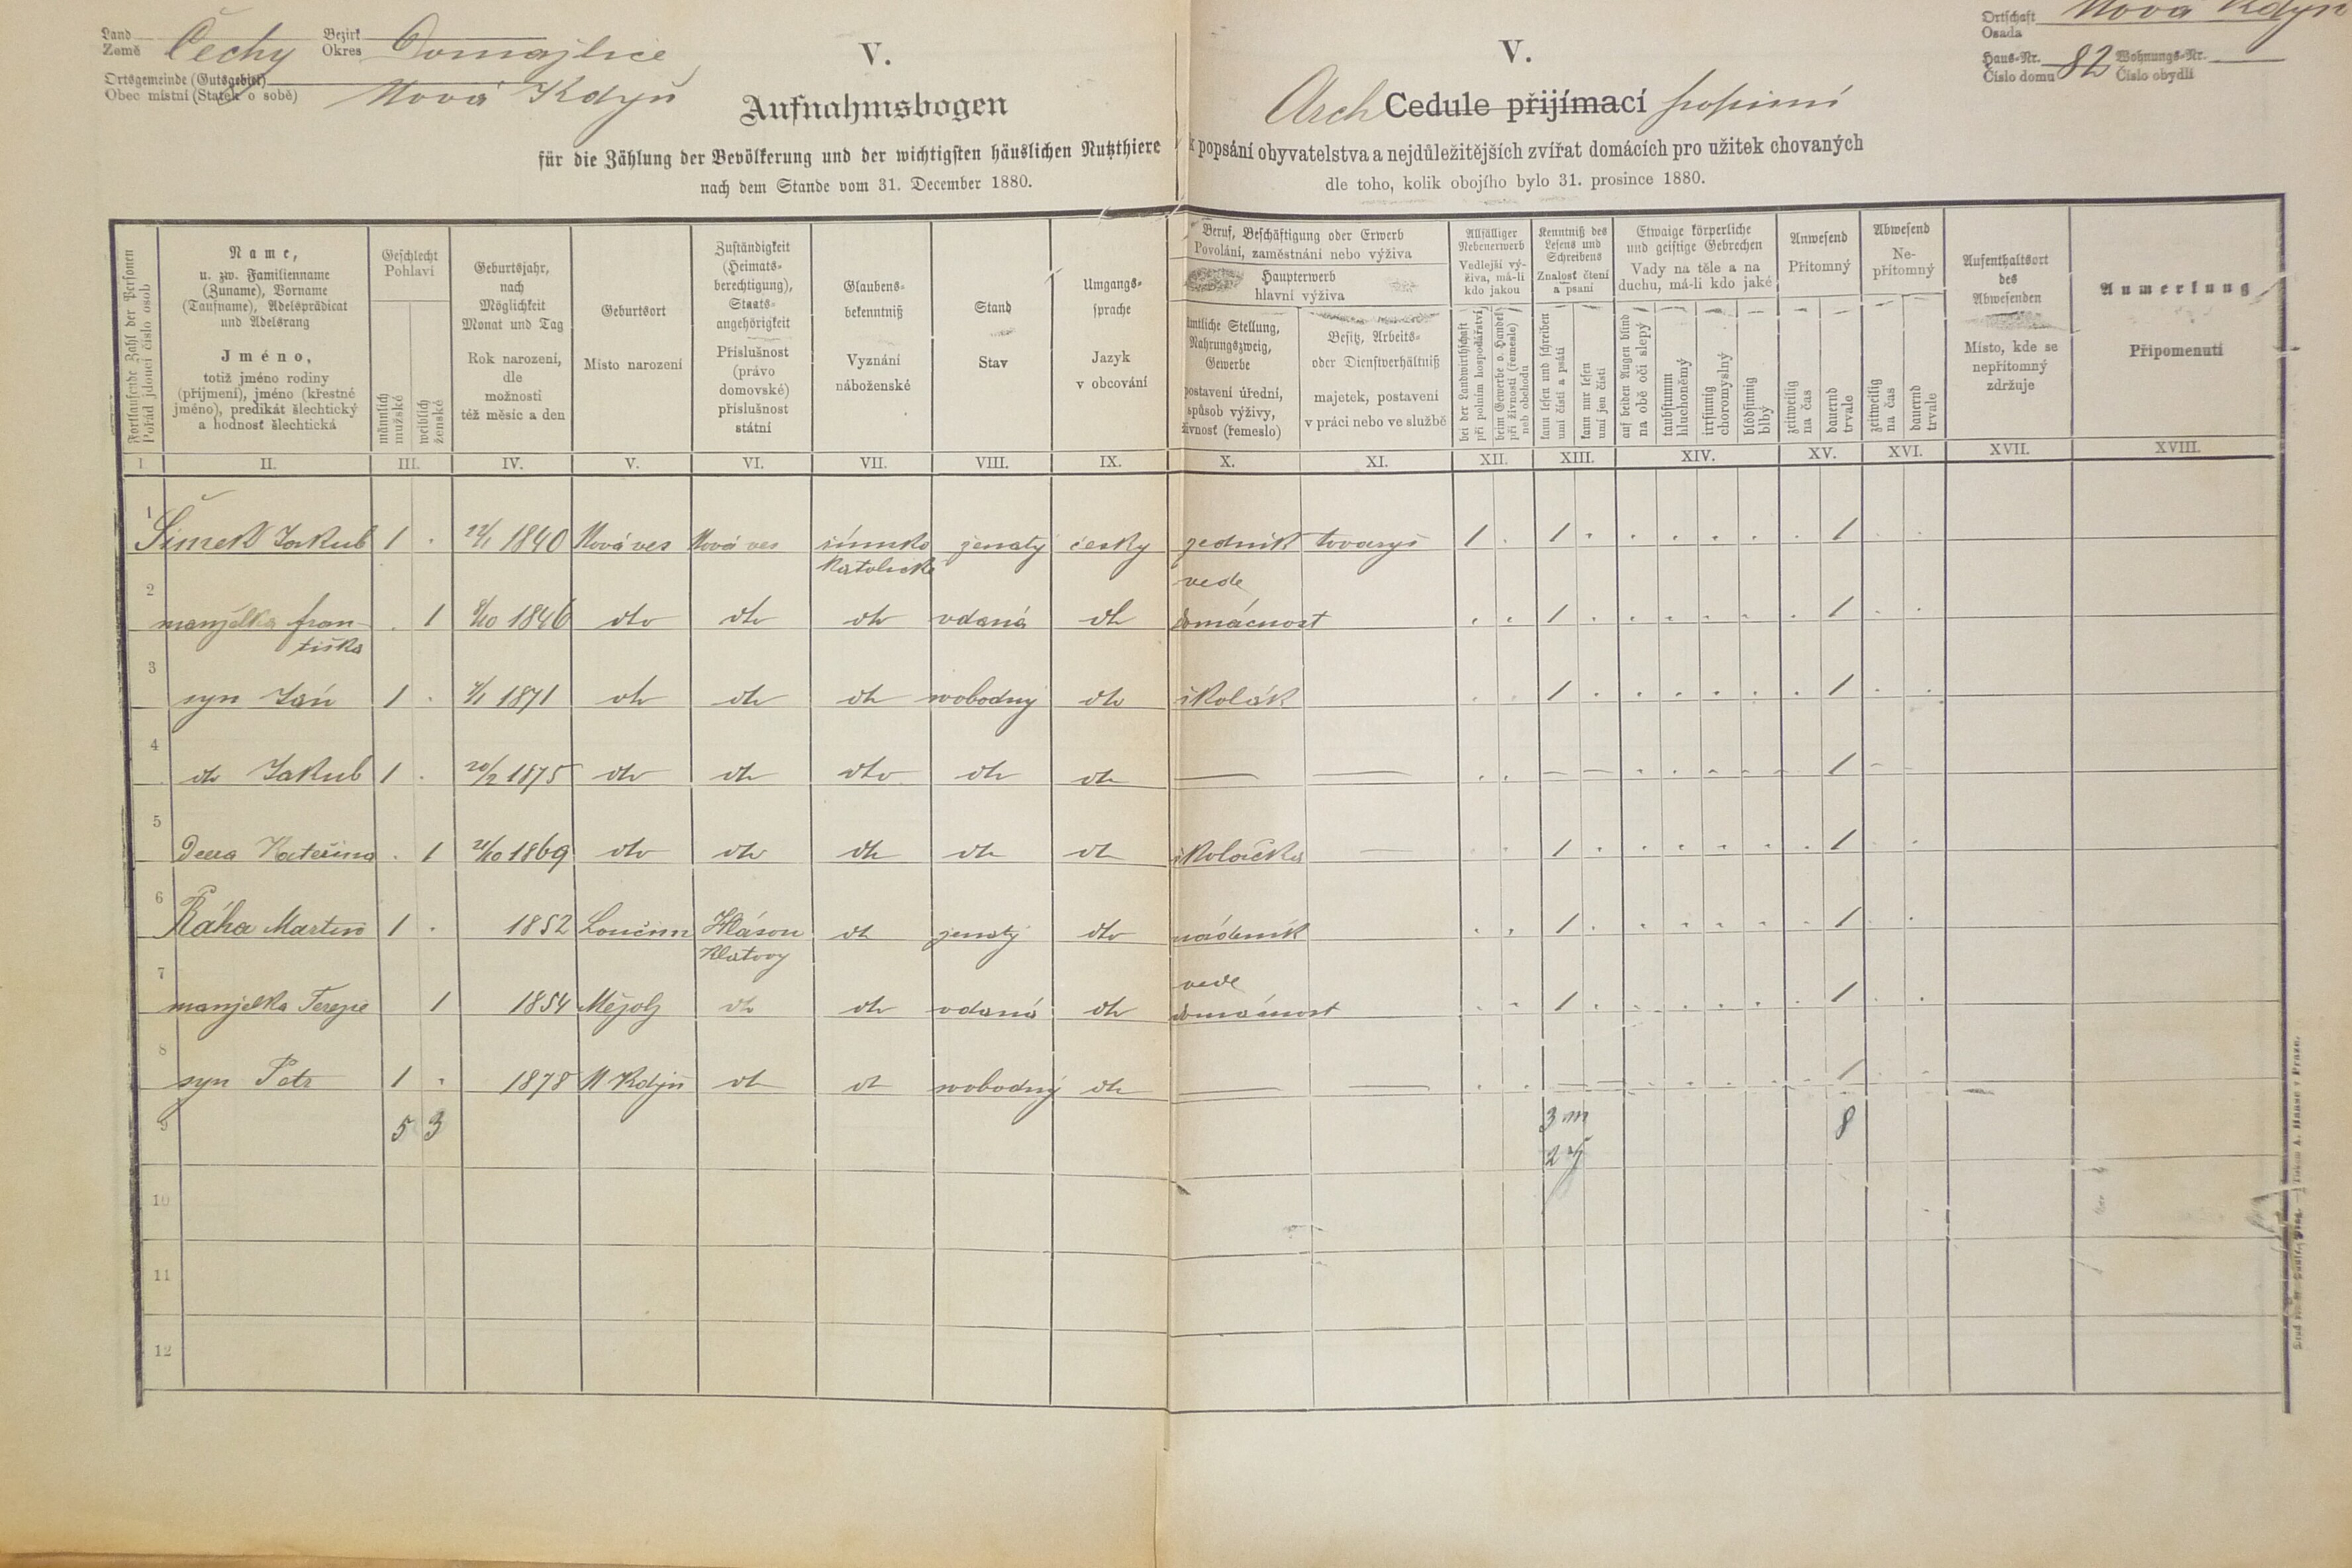 Land
Země Čechy
Bezirk
Okres Domažlice
Ortsgemeinde (Gutsgebiet)
Obec místní (Statek o sobě) Nová Kdyň
V.
Aufnahmsbogen
für die Zählung der Bevölkerung und der wichtigsten häuslichen Nutzthiere
nach dem Stande vom 31. December 1880.
V.
Arch Cedule přijímací popisní
k popsání obyvatelstva a nejdůležitějších zvířat domácích pro užitek chovaných
dle toho, kolik obojího bylo 31. prosince 1880.
Ortschaft
Osada Nová Kdyň
Haus-Nr.
Číslo domu 82
Wohnungs-Nr.
Číslo obydlí
Fortlaufende Zahl der Personen
Pořád jdoucí číslo osob
Name,
u. zw. Familienname
(Zuname), Vorname
(Taufname), Adelsprädicat
und Adelsrang
Jméno,
totiž jméno rodiny
(příjmení), jméno (křestné
jméno), predikát šlechtický
a hodnost šlechtická
Geschlecht
Pohlaví
männlich
mužské
weiblich
ženské
Geburtsjahr,
nach
Möglichkeit
Monat und Tag
Rok narození,
dle
možnosti
též měsíc a den
Geburtsort
Místo narození
Zuständigkeit
(Heimats-
berechtigung),
Staats-
angehörigkeit
Příslušnost
(právo
domovské)
příslušnost
státní
Glaubens-
bekenntniß
Vyznání
náboženské
Stand
Stav
Umgangs-
sprache
Jazyk
v obcování
Beruf, Beschäftigung oder Erwerb
Povolání, zaměstnání nebo výživa
Haupterwerb
hlavní výživa
ämtliche Stellung,
Nahrungszweig,
Gewerbe
postavení úřední,
spůsob výživy,
živnost (řemeslo)
Besitz, Arbeits-
oder Dienstverhältniß
majetek, postavení
v práci nebo ve službě
Allfälliger
Nebenerwerb
Vedlejší vý-
živa, má-li
kdo jakou
bei der Landwirthschaft
při polním hospodářství
beim Gewerbe o. Handel
při živnosti (řemeslo)
neb obchodu
Kenntniß des
Lesens und
Schreibens
Znalost čtení
a psaní
kann lesen und schreiben
umí čísti a psáti
kann nur lesen
umí jen čísti
Etwaige körperliche
und geistige Gebrechen
Vady na těle a na
duchu, má-li kdo jaké
auf beiden Augen blind
na obě oči slepý
taubstumm
hluchoněmý
irrsinnig
choromyslný
blödsinnig
blbý
Anwesend
Přítomný
zeitweilig
na čas
dauernd
trvale
Abwesend
Ne-
přítomný
zeitweilig
na čas
dauernd
trvale
Aufenthaltsort
des
Abwesenden
Místo, kde se
nepřítomný
zdržuje
Anmerkung
Připomenutí
I II. III. IV. V. VI. VII. VIII. IX. X. XI. XII. XIII. XIV. XV. XVI. XVII. XVIII.
1 Šimek Jakub 1 . 1840 Nová ves Nová ves římsko ženatý česky zedník tovaryš 1 . 1 . . . . . . 1 . .
katolické
vede
2 manželka Fran- . 1 8/10 1846 dto dto dto vdaná dto domácnost . . 1 . . . . . . 1 . .
tiška
3 syn Jan 1 . 1871 dto dto dto svobodný dto školák . . 1 . . . . . . 1 . .
4 dto Jakub 1 . 20/2 1875 dto dto dto dto dto — — . . — — . . . . . 1
5 Dcera Kateřina . 1 21/10 1869 dto dto dto dto dto školačka — . . 1 . . . . . . 1 . .
6 Ráha Martin 1 . 1852 Loučim Hlásou dto ženatý dto nádeník . . 1 . . . . . . 1 . .
Klatovy
vede
7 manželka Terezie 1 1854 dto dto vdaná dto domácnost . . 1 . . . . . . 1 . .
8 syn Petr 1 . 1878 N Kdyň dto dto svobodný dto — — . . — — . . . . . 1
9 5 3 3 m 8
2 ž
10
11
12